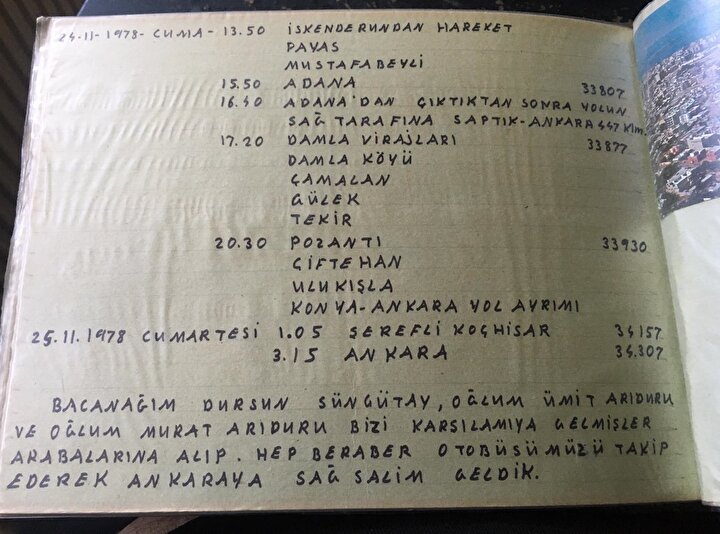 24.11-1978- CUMA - 13.50 İSKENDERUNDAN HAREKET
PAYAS
MUSTAFABEYLİ
15.50 ADANA 33807
16.40 ADANA'DAN ÇIKTIKTAN SONRA YOLUN
SAĞ TARAFINA SAPTIK-ANKARA 447 Klm.
17.20 DAMLA VİRAJLARI 33877
DAMLA KÖYÜ
ÇAMALAN
GÜLEK
TEKİR
20.30 POZANTI 33930
ÇİFTEHAN
ULUKIŞLA
KONYA-ANKARA YOL AYRIMI
25.11.1978 CUMARTESİ 1.05 ŞEREFLİ KOÇHİSAR 34157
3.15 ANKARA 34.307
BACANAĞIM DURSUN SÜNGÜTAY, OĞLUM ÜMİT ARIDURU
VE OĞLUM MURAT ARIDURU BİZİ KARŞILAMIYA GELMİŞLER
ARABALARINA ALIP. HEP BERABER OTOBÜSÜMÜZÜ TAKİP
EDEREK ANKARAYA SAĞ SALİM GELDİK.